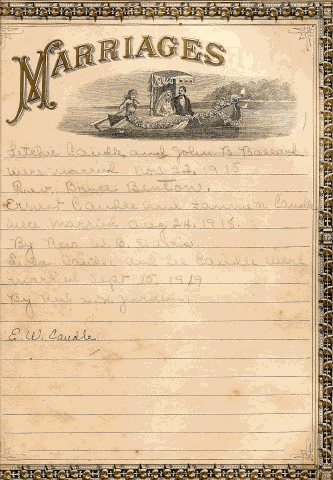 MARRIAGES
Caudle and John B. Ballard
were married Nov 22, 1915
Rev. Bruce Benton.
Ernest Caudle and Caudle
were married Aug 24, 1918.
By Rev W. O. Davis
and Lee Caudle were
married Sept 15, 1919
By Rev
E. W. Caudle